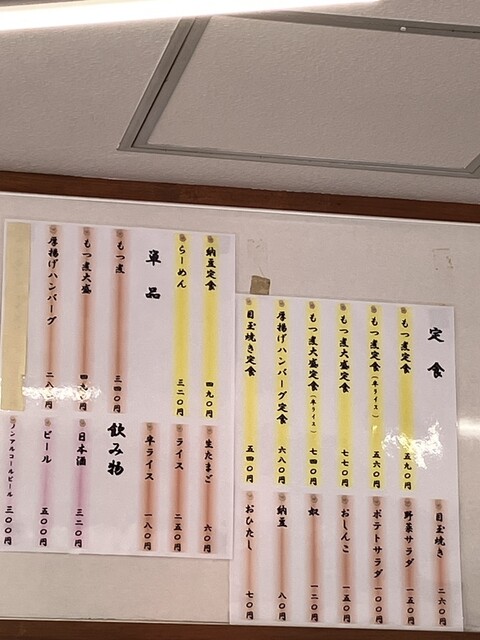 定食
もつ煮定食 五九〇円
もつ煮定食(半ライス) 五六〇円
もつ煮大盛定食 七七〇円
もつ煮大盛定食(半ライス) 七四〇円
厚揚げハンバーグ定食 六八〇円
目玉焼き定食 五四〇円
目玉焼き 二六〇円
野菜サラダ 一五〇円
ポテトサラダ 一〇〇円
おしんこ 一五〇円
奴 一二〇円
納豆 八〇円
おひたし 七〇円
納豆定食 四九〇円
らーめん 三二〇円
単品
もつ煮 三四〇円
もつ煮大盛 四九〇円
厚揚げハンバーグ 二八〇円
生たまご 六〇円
ライス 二五〇円
半ライス 一八〇円
飲み物
日本酒 三二〇円
ビール 五〇〇円
ノンアルコールビール 三〇〇円